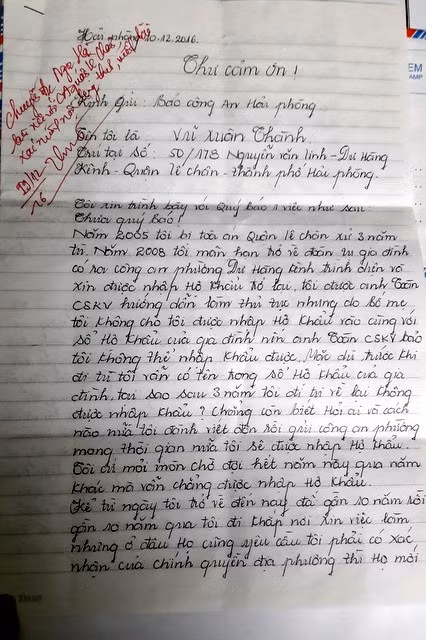 Hải phòng 10.12.2016.
Thư cảm ơn !
Chuyển đ/c Nga Hà
xác minh nội dung thư, viết bài
Kính Gửi : Báo công An Hải phòng
Tên tôi là : Vũ Xuân Thành
Trú tại số : 50/178 Nguyễn văn linh - Dư Hàng
Kênh - Quận lê chân - thành phố Hải phòng.
Tôi xin trình bày với Quý Báo 1 việc như sau
Thưa quý Báo !
Năm 2005 tôi bị toà án Quận lê chân xử 3 năm
tù, Năm 2008 tôi mãn hạn trở về đoàn tụ gia đình
có ra công an phường Dư Hàng Kênh trình diện và
xin được nhập Hộ khẩu trở lại, tôi được anh Toàn
CSKV hướng dẫn làm thủ tục nhưng do Bố mẹ
tôi không cho tôi được nhập Hộ khẩu vào cùng với
số Hộ khẩu của gia đình nên anh Toàn CSKV bảo
tôi không thể nhập khẩu được. Mặc dù trước khi
đi tù tôi vẫn có tên trong số Hộ khẩu của gia
đình, tại sao sau 3 năm tôi đi tù về lại không
được nhập khẩu ? Chẳng còn biết Hỏi ai và cách
nào nữa tôi đành viết đơn rồi gửi công an phường
mong thời gian nữa tôi sẽ được nhập Hộ khẩu.
Tôi cứ mỏi mòn chờ đợi hết năm này qua năm
khác mà vẫn chẳng được nhập Hộ khẩu.
Kể từ ngày tôi trở về đến nay đã gần 10 năm rồi
gần 10 năm qua tôi đi khắp nơi xin việc làm
nhưng ở đâu Họ cũng yêu cầu tôi phải có xác
nhận của chính quyền địa phương thì Họ mới